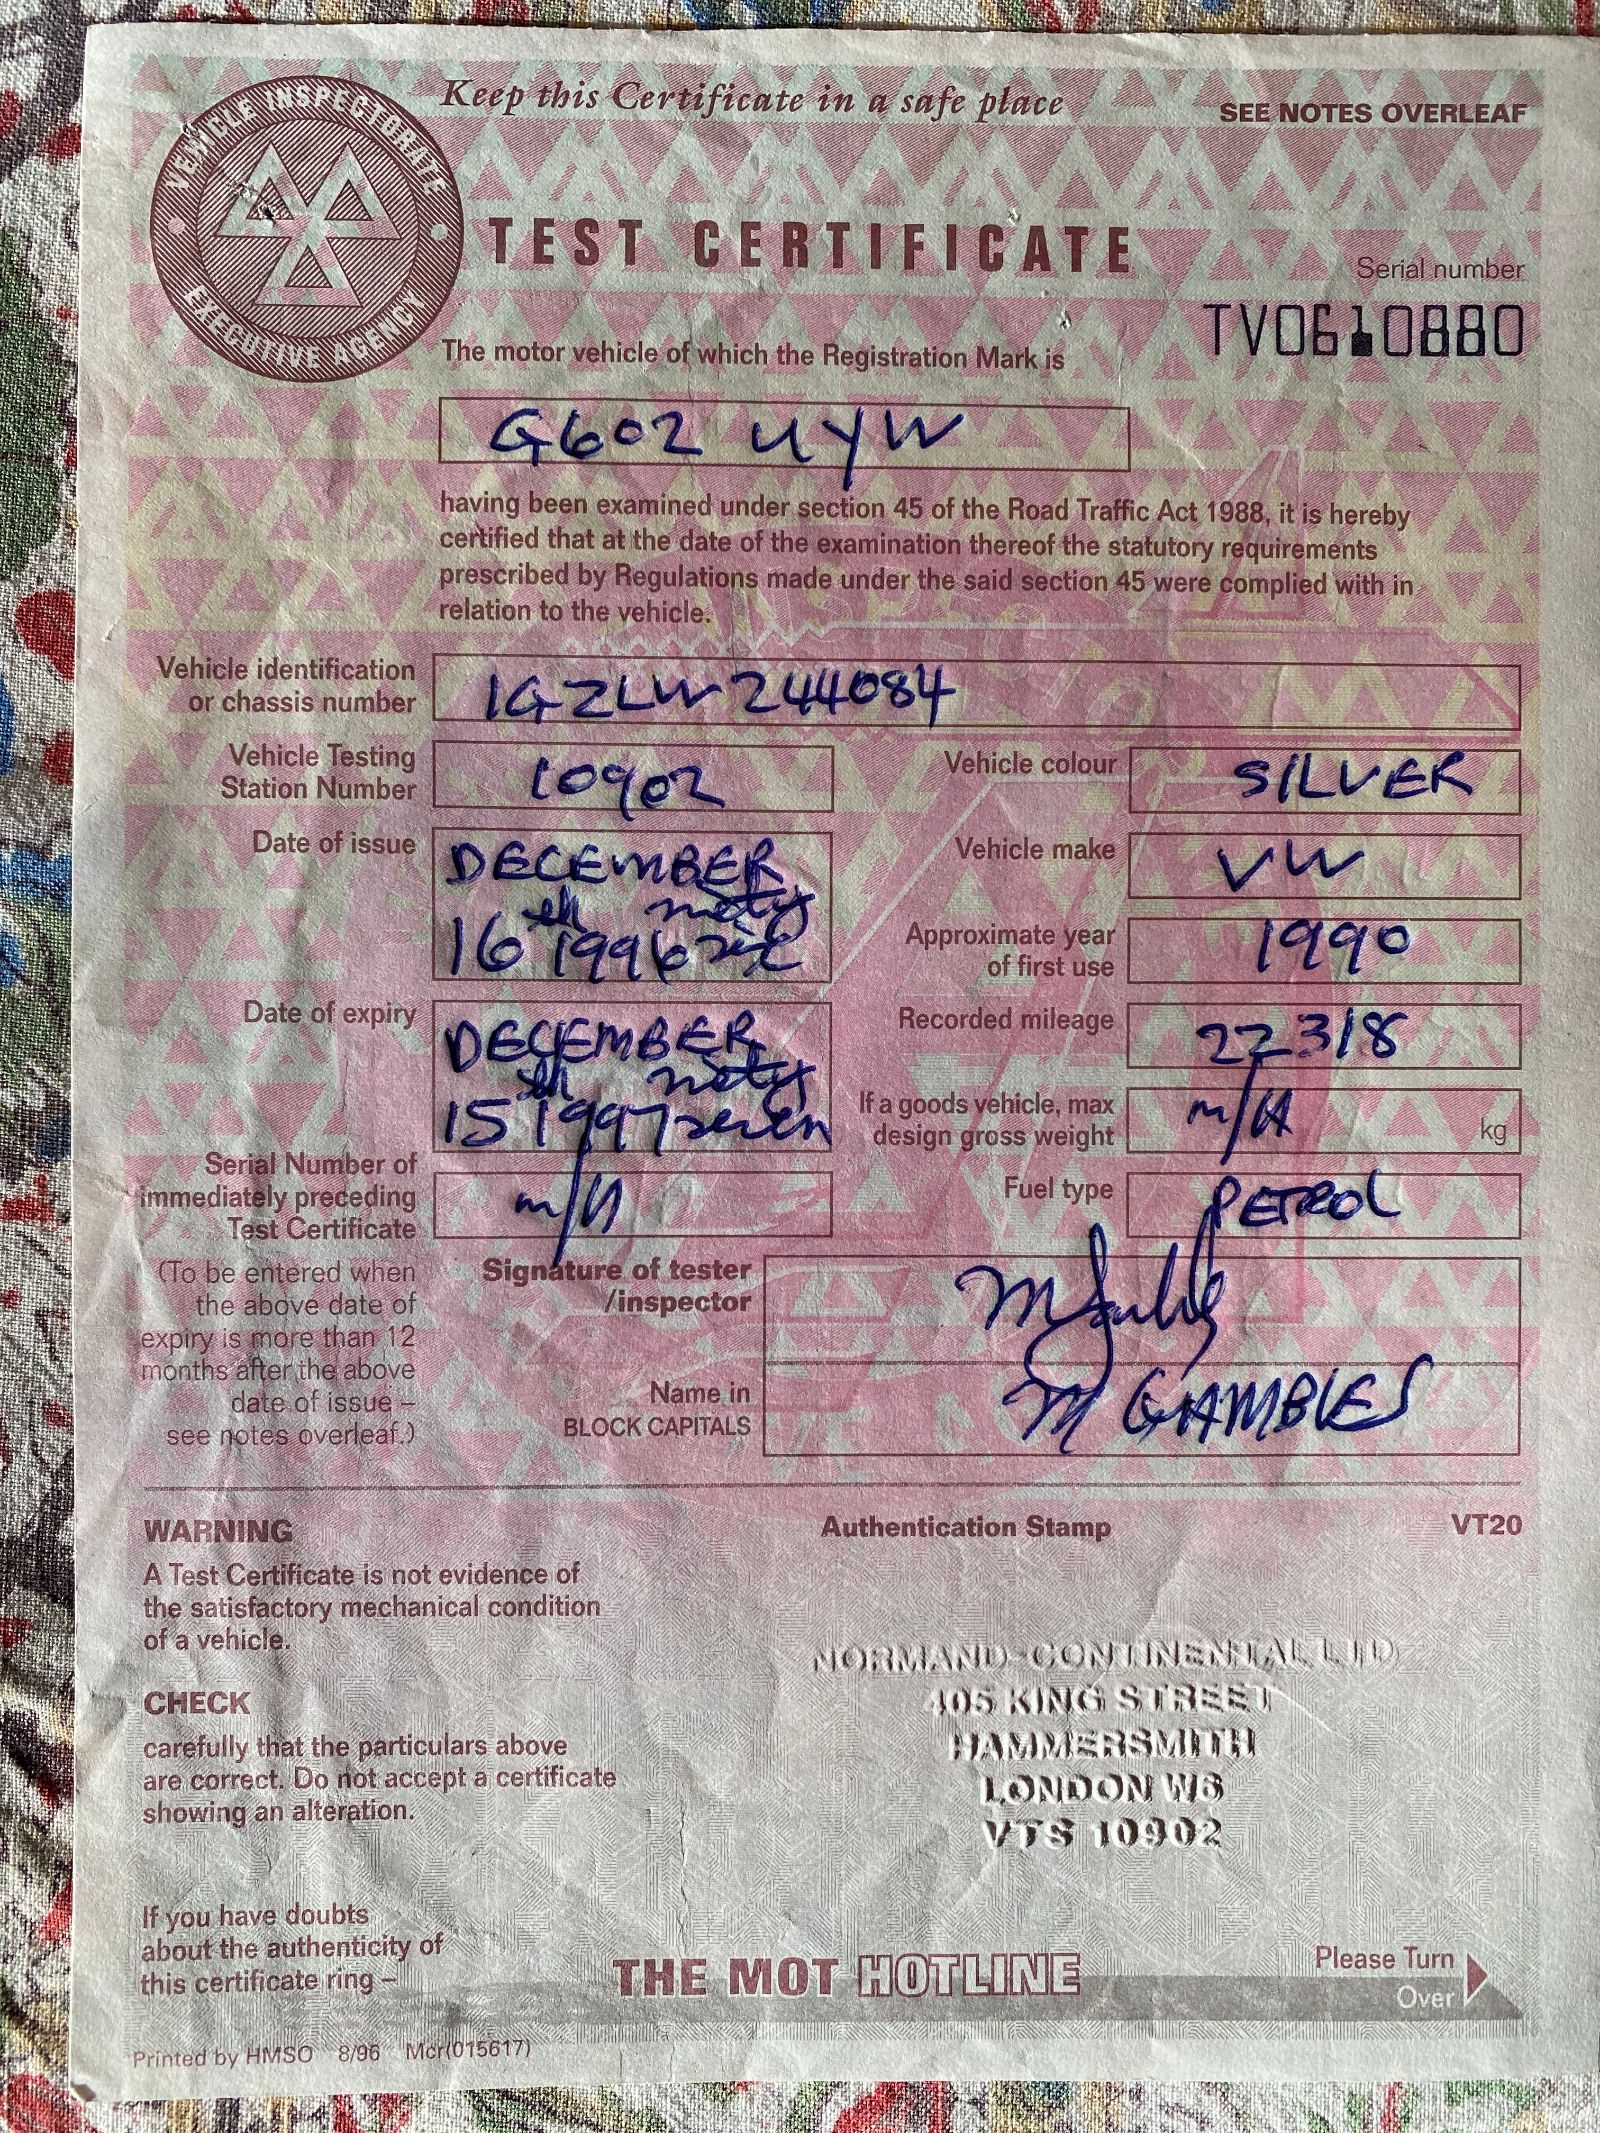 VEHICLE INSPECTORATE
EXECUTIVE AGENCY
Keep this Certificate in a safe place
SEE NOTES OVERLEAF
TEST CERTIFICATE
Serial number
TV0610880
The motor vehicle of which the Registration Mark is
G602 UYW
having been examined under section 45 of the Road Traffic Act 1988, it is hereby
certified that at the date of the examination thereof the statutory requirements
prescribed by Regulations made under the said section 45 were complied with in
relation to the vehicle.
Vehicle identification
or chassis number
1GZLW244084
Vehicle Testing
Station Number
10902
Vehicle colour
SILVER
Date of issue
DECEMBER
16th 1996 six
Vehicle make
VW
Approximate year
of first use
1990
Date of expiry
DECEMBER
15th 1997 seven
Recorded mileage
22318
If a goods vehicle, max
design gross weight
kg
Serial Number of
immediately preceding
Test Certificate
Fuel type
PETROL
(To be entered when
the above date of
expiry is more than 12
months after the above
date of issue –
see notes overleaf.)
Signature of tester
/inspector
Name in
BLOCK CAPITALS
M GAMBLES
WARNING
A Test Certificate is not evidence of
the satisfactory mechanical condition
of a vehicle.
Authentication Stamp
VT20
CHECK
carefully that the particulars above
are correct. Do not accept a certificate
showing an alteration.
NORMAND-CONTINENTAL LTD
405 KING STREET
HAMMERSMITH
LONDON W6
VTS 10902
If you have doubts
about the authenticity of
this certificate ring –
THE MOT HOTLINE
Please Turn
Over
Printed by HMSO 8/96 Mcr(015617)